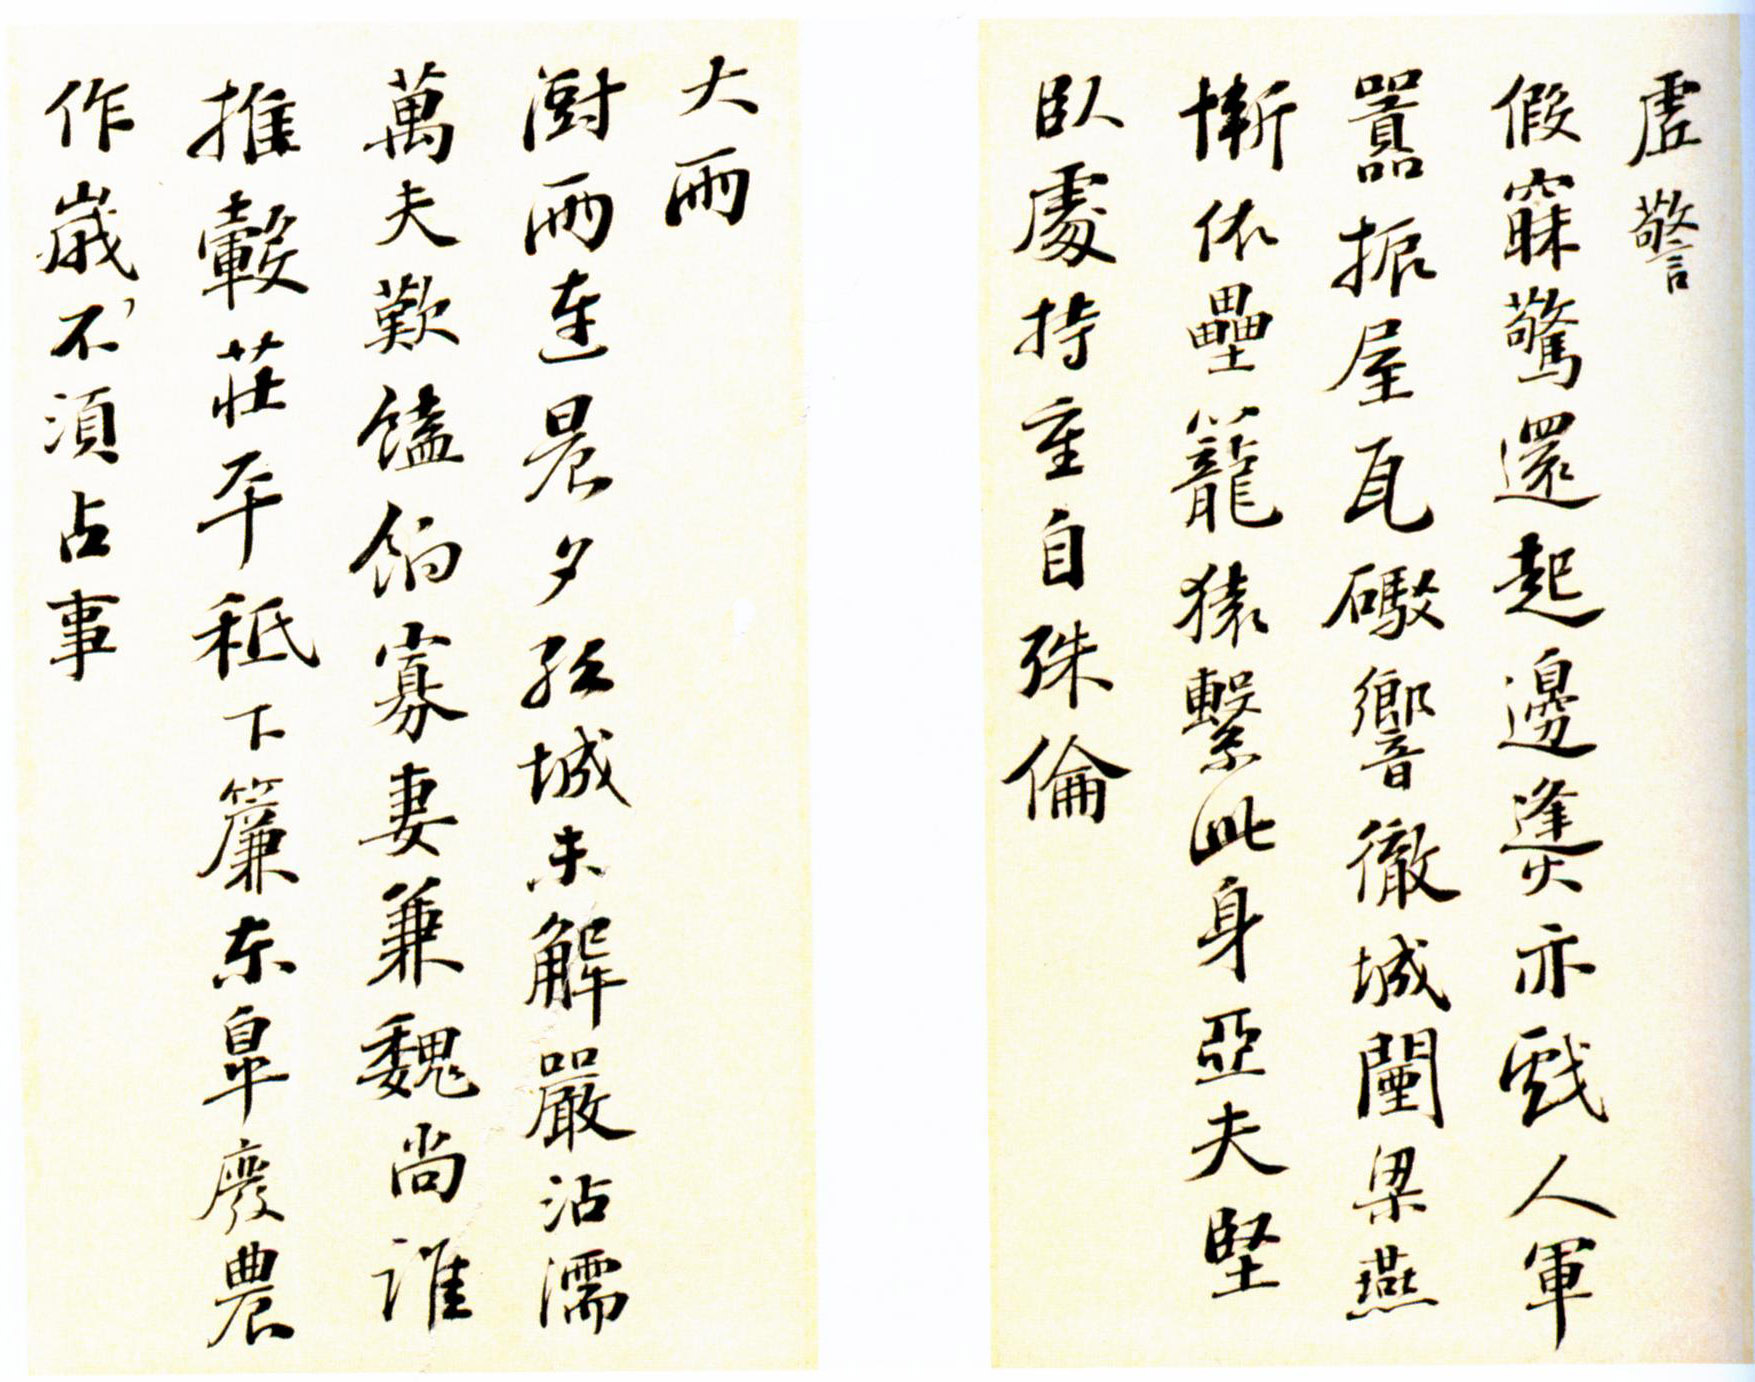 虛警
假寐驚還起邊燧亦戲人軍
囂振屋瓦礮響徹城闉梁燕
慚依壘籠猿繫此身亞夫堅
臥處持重自殊倫
大雨
澍雨連晨夕孤城未解嚴沾濡
萬夫歎饁餉寡妻兼魏尚誰
推轂莊平秪下簾東皐廢農
作歲不須占事